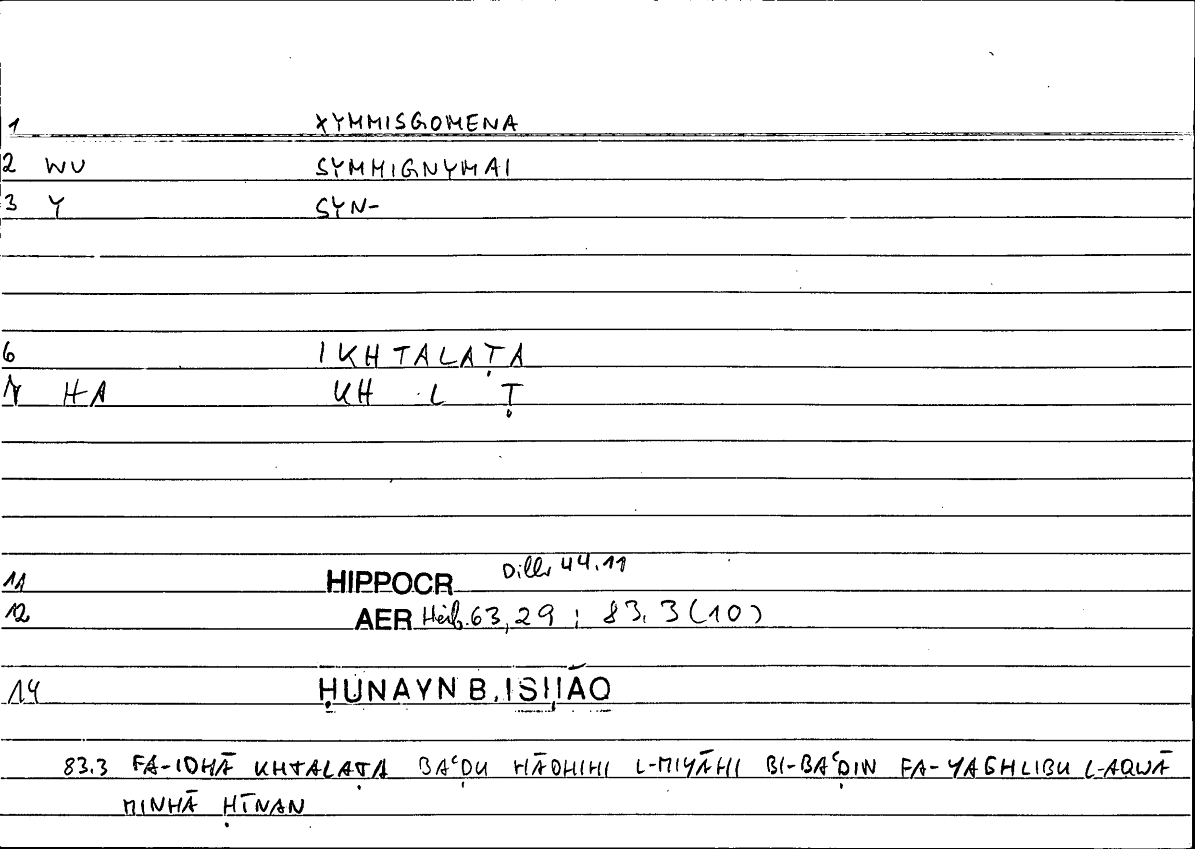 1 XYMMISGOMENA
2 WU SYMMIGNYMAI
3 Y SYN-
6 IKHTALAṬA
7 HA KH L Ṭ
11 HIPPOCR Diller 44.11
12 AER Heib. 63,29 ; 83.3(10)
14 ḤUNAYN B. ISḤĀQ
83.3 FA-IDHĀ KHTALAṬA BAʿḌU HĀDHIHI L-MIYĀHI BI-BAʿḌIN FA-YAGHLIBU L-AQWĀ
MINHĀ ḤĪNAN